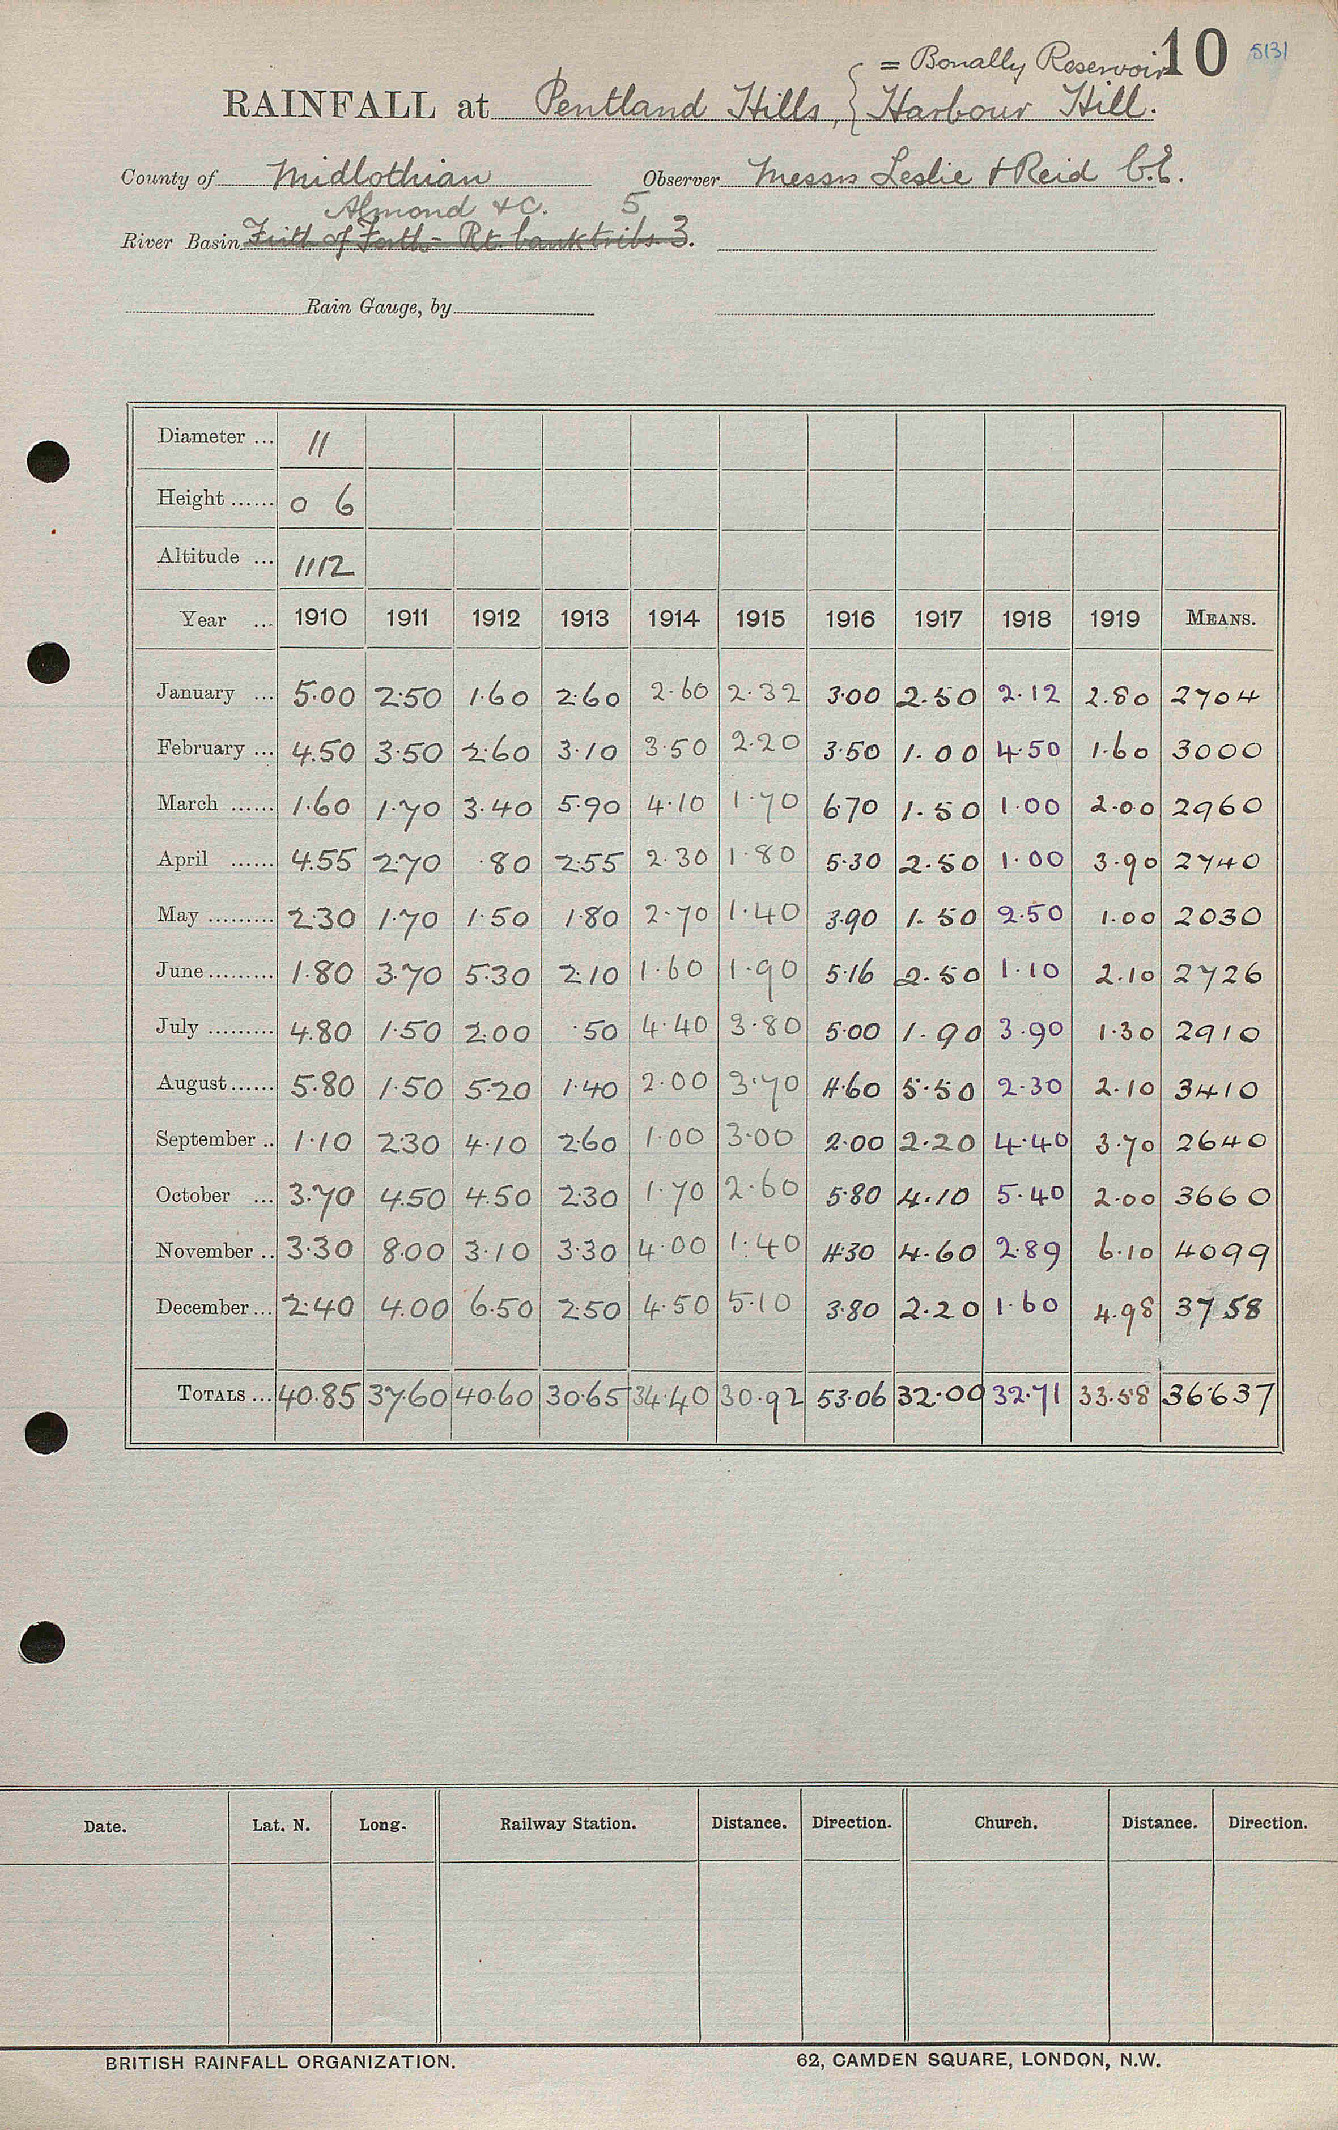 = Bonally Reservoir 10 5131
RAINFALL at Pentland Hills, { Harbour Hill.
County of Midlothian Observer Messrs Leslie & Reid C.E.
Almond &c. 5
River Basin Firth of Forth - Rt. bank tribs. 3.
Rain Gauge, by
Diameter ... 11
Height ...... 0 6
Altitude ... 1112
Year ... 1910 1911 1912 1913 1914 1915 1916 1917 1918 1919 MEANS.
January ... 5.00 2.50 1.60 2.60 2.60 2.32 3.00 2.50 2.12 2.80 2704
February ... 4.50 3.50 2.60 3.10 3.50 2.20 3.50 1.00 4.50 1.60 3000
March ...... 1.60 1.70 3.40 5.90 4.10 1.70 6.70 1.50 1.00 2.00 2960
April ...... 4.55 2.70 .80 2.55 2.30 1.80 5.30 2.50 1.00 3.90 2740
May ......... 2.30 1.70 1.50 1.80 2.70 1.40 3.90 1.50 2.50 1.00 2030
June ......... 1.80 3.70 5.30 2.10 1.60 1.90 5.16 2.50 1.10 2.10 2726
July ......... 4.80 1.50 2.00 .50 4.40 3.80 5.00 1.90 3.90 1.30 2910
August ...... 5.80 1.50 5.20 1.40 2.00 3.70 4.60 5.50 2.30 2.10 3410
September .. 1.10 2.30 4.10 2.60 1.00 3.00 2.00 2.20 4.40 3.70 2640
October ... 3.70 4.50 4.50 2.30 1.70 2.60 5.80 4.10 5.40 2.00 3660
November .. 3.30 8.00 3.10 3.30 4.00 1.40 4.30 4.60 2.89 6.10 4099
December ... 2.40 4.00 6.50 2.50 4.50 5.10 3.80 2.20 1.60 4.98 3758
TOTALS ... 40.85 37.60 40.60 30.65 34.40 30.92 53.06 32.00 32.71 33.58 36637
Date. Lat. N. Long. Railway Station. Distance. Direction. Church. Distance. Direction.
BRITISH RAINFALL ORGANIZATION. 62, CAMDEN SQUARE, LONDON, N.W.